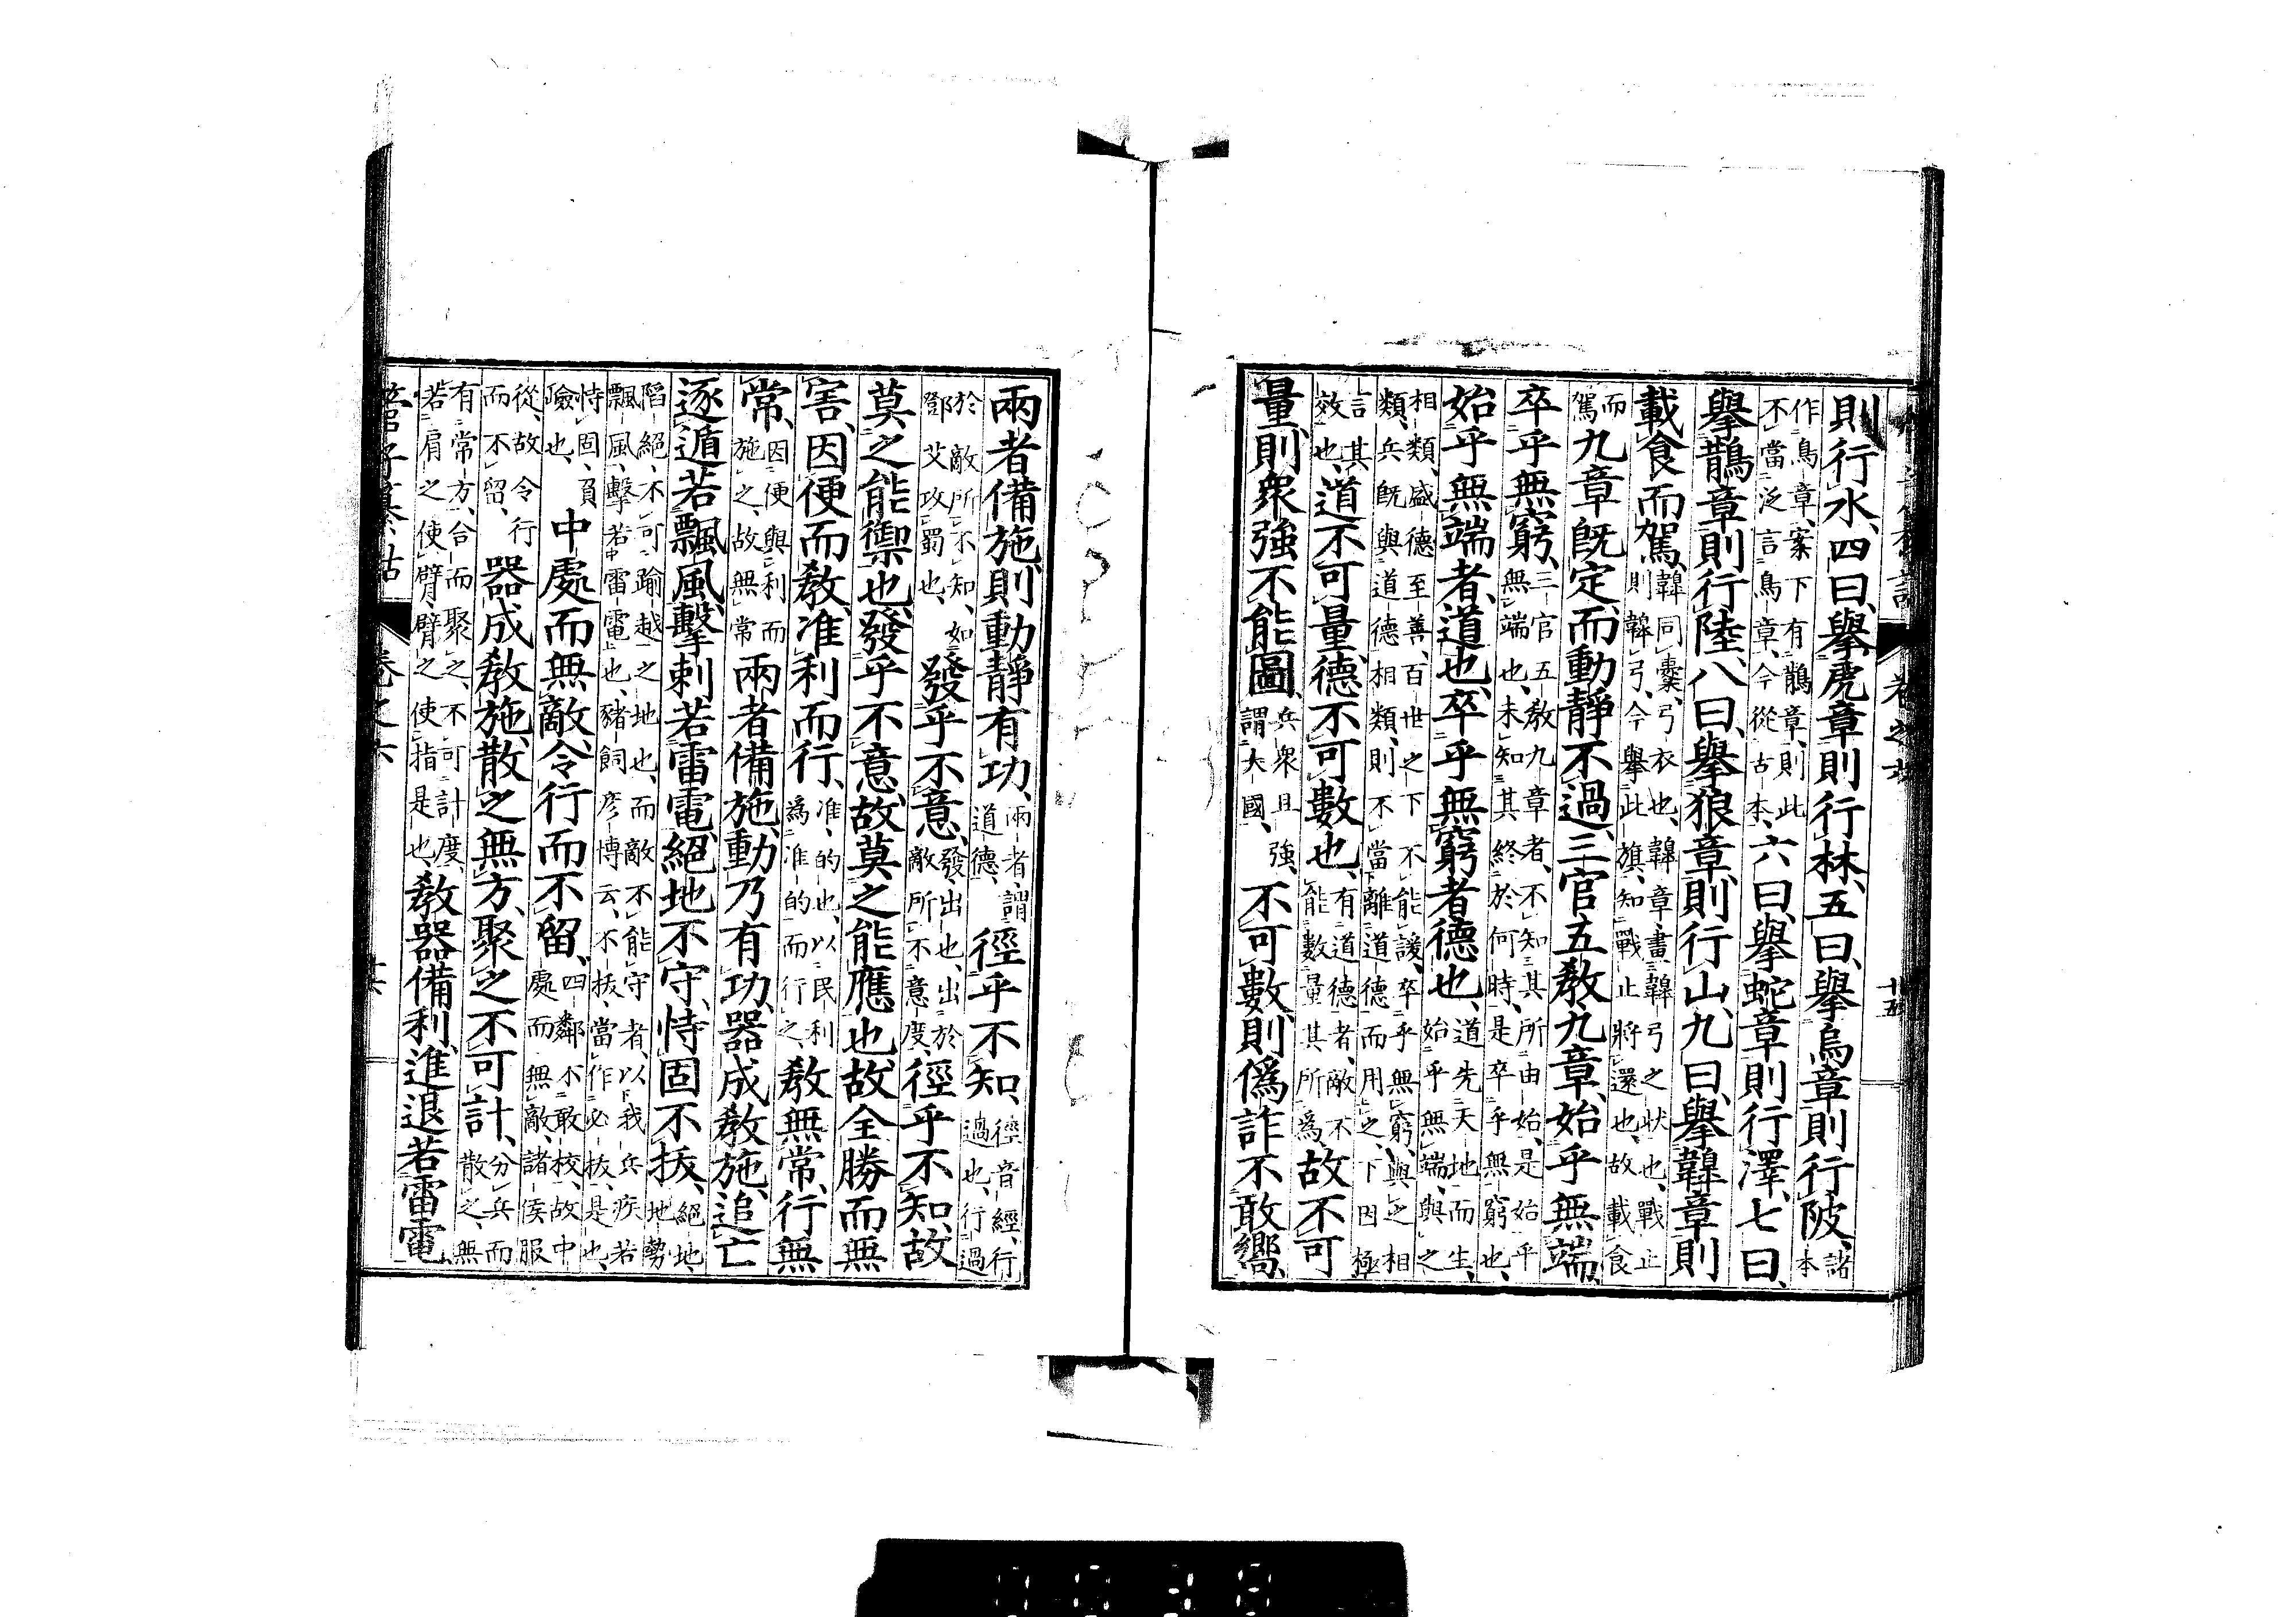 則行水、四曰、擧虎章則行林、五曰、擧烏章則行陂、諸本
作鳥章、案下有鵲章、則此不當泛言鳥章、今從古本、六曰、擧蛇章則行澤、七曰、
擧鵲章則行陸、八曰、擧狼章則行山、九曰、擧韟章則
載食而駕、韟同櫜、弓衣也、韟章畫韟弓之狀也、戰止則韟弓、今擧此旗、知戰止將還也、故載食
而駕九章既定、而動靜不過、三官五敎九章、始乎無端、
卒乎無窮、三官五敎九章者、不知其所由始、是始乎無端也、未知其終於何時、是卒乎無窮也、
始乎無端者、道也、卒乎無窮者德也、道先天地而生、始乎無端、與之
相類、盛德至善、百世之下不能諼、卒乎無窮、與之相類、兵既與道德相類、則不當離道德而用之、下因極
言其效也、道不可量、德不可數也、有道德者、敵不能數量其所爲、故不可
量、則衆強不能圖、兵衆且強、謂大國、不可數、則僞詐不敢嚮、
兩者備施、則動靜有功、兩者、謂道德、徑乎不知、徑音經、行過也、行過
於敵所不知、如鄧艾攻蜀也、發乎不意、發、出也、出於敵所不意度、徑乎不知、故
莫之能禦也、發乎不意、故莫之能應也、故全勝而無
害、因便而敎、准利而行、准、的也、以民利爲准的而行之、敎無常、行無
常、因便與利而施之、故無常兩者備施、動乃有功、器成敎施、追亡
逐遁若飄風、擊刺若雷電、絕地不守、恃固不拔、絕地、地勢
陷絕、不可踰越之地也、而敵不能守者、以我兵疾若飄風、擊若雷電也、豬飼彦博云、不拔、當作必拔、是也、
恃固、負險也、中處而無敵、令行而不留、四鄰不敢校、故中處而無敵、諸侯服
從、故令行而不留、器成敎施、散之無方、聚之不可計、分兵而散之、無
有常方、合而聚之、不可計度、若肩之使臂、臂之使指是也、敎器備利、進退若雷電、